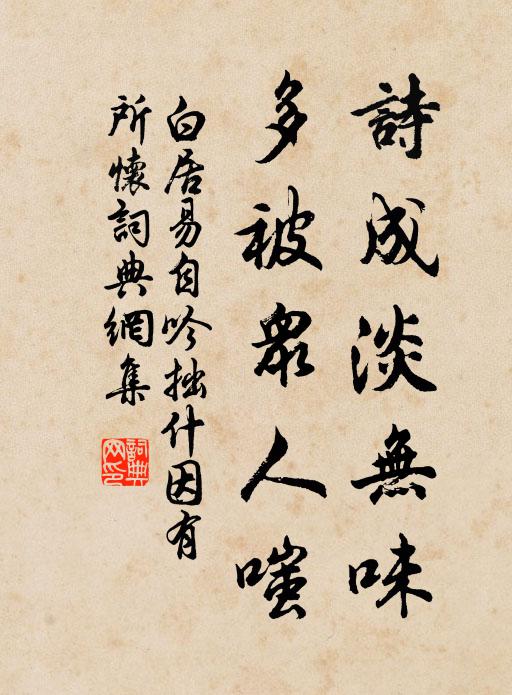 詩成淡無味
多被眾人嗤
白居易自吟拙什因有
所懷詞典網集
詞典
网印